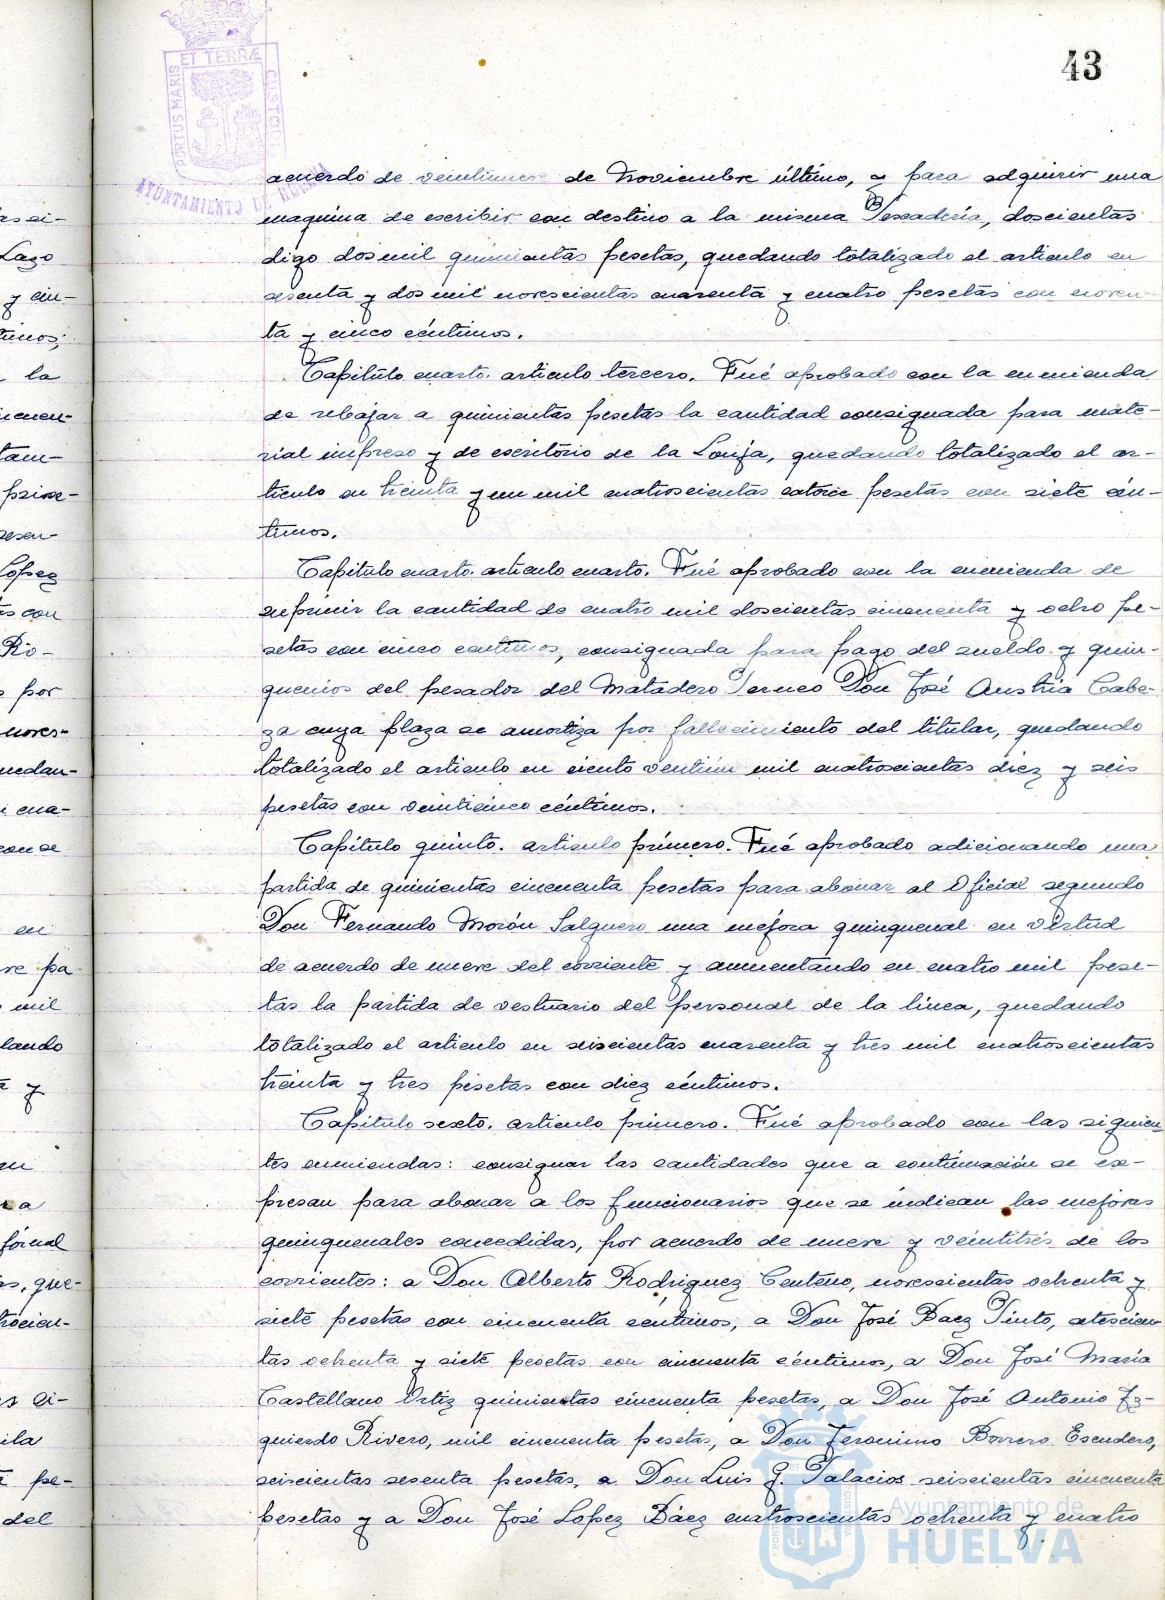 43
PORTUS MARIS ET TERRÆ CUSTODIA
AYUNTAMIENTO DE HUELVA
acuerdo de veintinueve de Noviembre último, y para adquirir una
maquina de escribir con destino a la misma Pescadería, doscientas
digo dos mil quinientas pesetas, quedando totalizado el articulo en
sesenta y dos mil novescientas cuarenta y cuatro pesetas con noven-
ta y cinco céntimos.
Capitulo cuarto. articulo tercero. Fué aprobado con la enmienda
de rebajar a quinientas pesetas la cantidad consignada para mate-
rial impreso y de escritorio de la Lonja, quedando totalizado el ar-
ticulo en treinta y un mil cuatroscientas catorce pesetas con siete cén-
timos.
Capitulo cuarto. articulo cuarto. Fué aprobado con la enmienda de
suprimir la cantidad de cuatro mil doscientas cincuenta y ocho pe-
setas con cinco centimos, consignada para pago del sueldo y quin-
quenios del pesador del Matadero Perneo Don José Austria Cabe-
za cuya plaza se amortiza por fallecimiento del titular, quedando
totalizado el articulo en ciento ventiun mil cuatroscientas diez y seis
pesetas con veinticinco céntimos.
Capítulo quinto. articulo primero. Fué aprobado adicionando una
partida de quinientas cincuenta pesetas para abonar al Oficial segundo
Don Fernando Morón Salguero una mejora quinquenal en virtud
de acuerdo de nueve del corriente y aumentando en cuatro mil pese-
tas la partida de vestuario del personal de la línea, quedando
totalizado el articulo en seiscientas cuarenta y tres mil cuatroscientas
treinta y tres pesetas con diez céntimos.
Capitulo sexto. articulo primero. Fué aprobado con las siguien-
tes enmiendas: consignar las cantidades que a continuación se ex-
presan para abonar a los funcionarios que se indican las mejoras
quinquenales concedidas, por acuerdo de nueve y veintitrés de los
corrientes: a Don Alberto Rodriguez Centeno, novescientas ochenta y
siete pesetas con cincuenta céntimos, a Don José Baez Pinto, setescien-
tas ochenta y siete pesetas con cincuenta céntimos, a Don José María
Castellano Ortiz quinientas cincuenta pesetas, a Don José Antonio Iz-
quierdo Rivero, mil cincuenta pesetas, a Don Jeronimo Borrero Escudero,
seiscientas sesenta pesetas, a Don Luis G. Palacios seiscientas cincuenta
pesetas y a Don José Lopez Báez cuatroscientas ochenta y cuatro
Ayuntamiento de
HUELVA